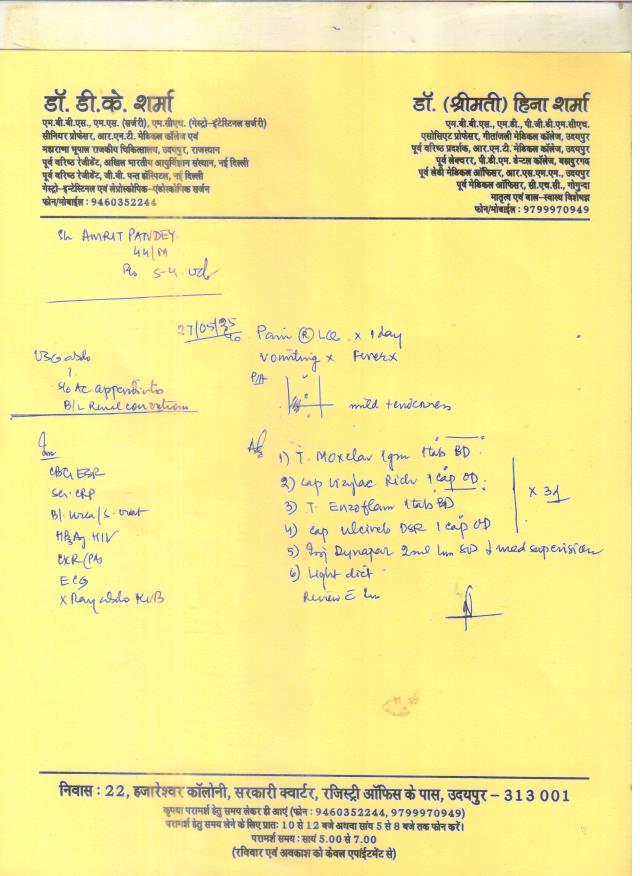 डॉ. डी.के. शर्मा
एम.बी.बी.एस., एम.एस. (सर्जरी), एम.सीएच. (गेस्ट्रो-इंटेस्टिनल सर्जरी)
सीनियर प्रोफेसर, आर.एन.टी. मेडिकल कॉलेज एवं
महाराणा भूपाल राजकीय चिकित्सालय, उदयपुर, राजस्थान
पूर्व वरिष्ठ रेजीडेंट, अखिल भारतीय आयुर्विज्ञान संस्थान, नई दिल्ली
पूर्व वरिष्ठ रेजीडेंट, जी.बी. पन्त हॉस्पिटल, नई दिल्ली
गेस्ट्रो-इन्टेस्टिनल एवं लेप्रोस्कोपिक-एंडोस्कोपिक सर्जन
फोन/मोबाईल : 9460352244
डॉ. (श्रीमती) हिना शर्मा
एम.बी.बी.एस., एम.डी., पी.जी.डी.एम.सीएच.
एसोसिएट प्रोफेसर, गीतांजली मेडिकल कॉलेज, उदयपुर
पूर्व वरिष्ठ प्रदर्शक, आर.एन.टी. मेडिकल कॉलेज, उदयपुर
पूर्व लेक्चरर, पी.डी.एम. डेन्टल कॉलेज, बहादुरगढ़
पूर्व लेडी मेडिकल ऑफिसर, आर.एस.एम.एम., उदयपुर
पूर्व मेडिकल ऑफिसर, सी.एच.सी., गोगुन्दा
मातृत्व एवं बाल-स्वास्थ्य विशेषज्ञ
फोन/मोबाईल : 9799970949
AMRIT PANDEY
44/M
R/o S-4, Ud
27/05/25
Pain (R) x 1 day
Vomiting x Fever x
USG abdo
s/o Ac appendicitis
B/L Renal concretions
P/A
mild tenderness
Inv
CBC, ESR
Ser. CRP
Bl. Urea/S. creat
HBsAg HIV
CXR (PA)
ECG
X Ray abdo KUB
Adv
1) T. Moxclav 1gm 1 tab BD
2) Cap Vizylac Rich 1 cap OD
3) T. Enzoflam 1 tab BD
4) Cap DSR 1 cap OD
x 3d
5) Inj Dynapar 2ml Im med supervision
6) Light diet
Review c̄ Inv
निवास : 22, हजारेश्वर कॉलोनी, सरकारी क्वार्टर, रजिस्ट्री ऑफिस के पास, उदयपुर – 313 001
कृपया परामर्श हेतु समय लेकर ही आएं (फोन : 9460352244, 9799970949)
परामर्श हेतु समय लेने के लिए प्रातः 10 से 12 बजे अथवा सांय 5 से 8 बजे तक फोन करें।
परामर्श समय : सायं 5.00 से 7.00
(रविवार एवं अवकाश को केवल एपांईटमेंट से)